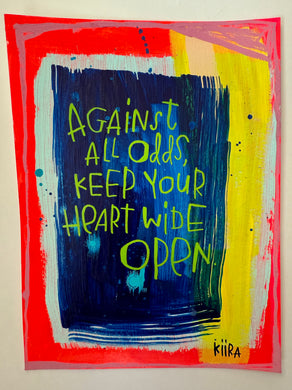 AGAINST
ALL Odds,
KEEP YOUR
HEART WiDE
OPEN
kiiRA